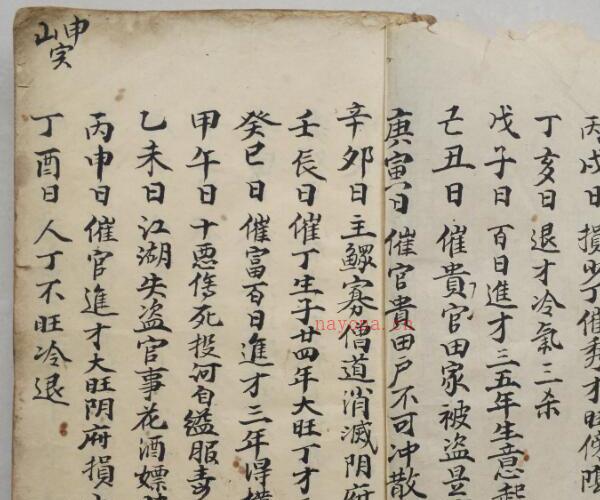 丙戌日損
丁亥日退才冷氣三杀
戊子日百日進才三五年生意起
己丑日催貴官田家被盗
庚寅日催官貴田戶不可冲散
辛夘日主鰥寡僧道消滅阴府
壬辰日催丁生子廿四年大旺丁才
癸巳日催富百日進才三年得横
甲午日十悪傷死投河自縊服毒
乙未日江湖失盗官事花酒嫖
丙申日催官進才大旺阴府損
丁酉日人丁不旺冷退
申山寅